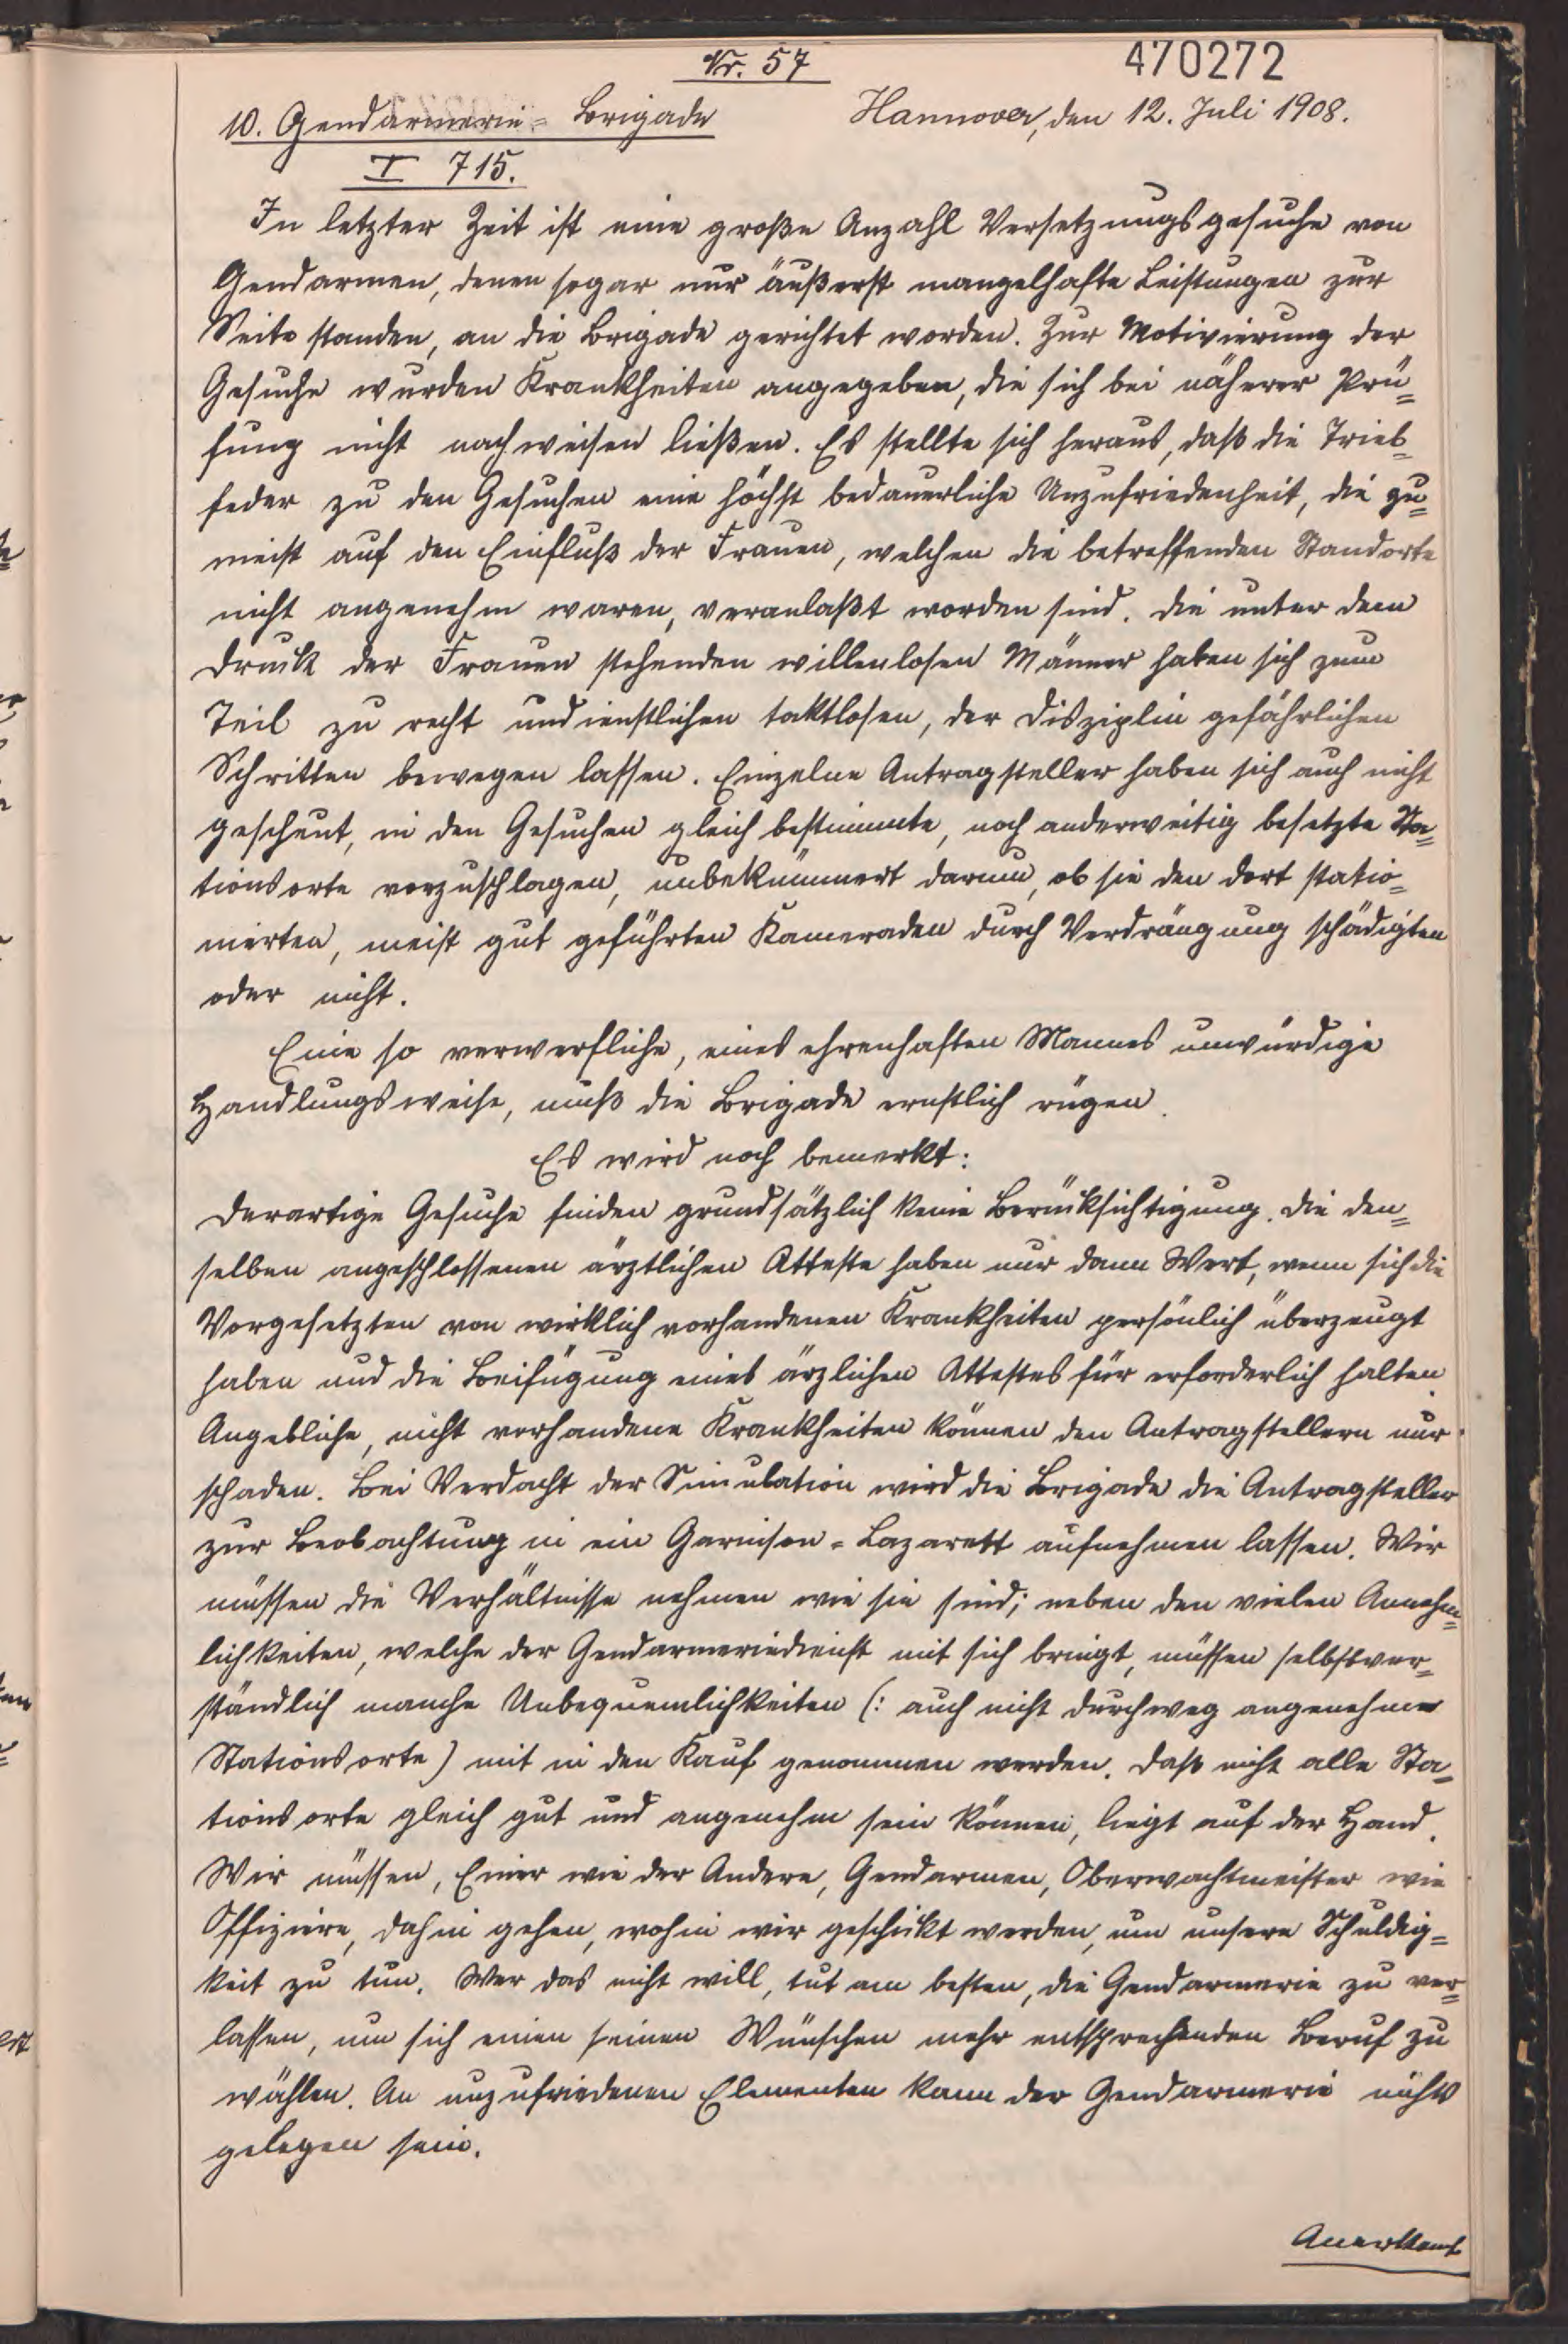 Nr. 57
470272
10. Gendarmerie-Brigade
Hannover, den 12. Juli 1908.
I 715.
In letzter Zeit ist eine große Anzahl Versetzungsgesuche von
Gendarmen, denen sogar nur äußerst mangelhafte Leistungen zur
Seite standen, an die Brigade gerichtet worden. Zur Motivierung der
Gesuche wurden Krankheiten angegeben, die sich bei näherer Prü=
fung nicht nachweisen ließen. Es stellte sich heraus, daß die Trieb=
feder zu den Gesuchen eine höchst bedauerliche Unzufriedenheit, die zu=
meist auf den Einfluß der Frauen, welchen die betreffenden Standorte
nicht angenehm waren, veranlaßt worden sind. Die unter dem
Druck der Frauen stehenden willenlosen Männer haben sich zum
Teil zu recht undienstlichen taktlosen, der Disziplin gefährlichen
Schritten bewegen lassen. Einzelne Antragsteller haben sich auch nicht
gescheut, in den Gesuchen gleich bestimmte, noch anderweitig besetzte Sta=
tionsorte vorzuschlagen, unbekümmert darum, ob sie den dort statio=
nierten, meist gut geführten Kameraden durch Verdrängung schädigten
oder nicht.
Eine so verwerfliche, eines ehrenhaften Mannes unwürdige
Handlungsweise, muß die Brigade ernstlich rügen.
Es wird noch bemerkt:
Derartige Gesuche finden grundsätzlich keine Berücksichtigung. Die den=
selben angeschlossenen ärztlichen Atteste haben nur dann Wert, wenn sich die
Vorgesetzten von wirklich vorhandenen Krankheiten persönlich überzeugt
haben und die Beifügung eines ärzlichen Attestes für erforderlich halten.
Angebliche, nicht vorhandene Krankheiten können den Antragstellern nur
schaden. Bei Verdacht der Simulation wird die Brigade die Antragsteller
zur Beobachtung in ein Garnison=Lazarett aufnehmen lassen. Wir
müssen die Verhältnisse nehmen wie sie sind; neben den vielen Annehm=
lichkeiten, welche der Gendarmeriedienst mit sich bringt, müssen selbstver=
ständlich manche Unbequemlichkeiten (: auch nicht durchweg angenehme
Stationsorte) mit in den Kauf genommen werden. Daß nicht alle Sta=
tionsorte gleich gut und angenehm sein können, liegt auf der Hand.
Wir müssen, Einer wie der Andere, Gendarmen, Oberwachtmeister wie
Offiziere, dahin gehen, wohin wir geschickt werden, um unsere Schuldig=
keit zu tun. Wer das nicht will, tut am besten, die Gendarmerie zu ver=
lassen, um sich einen seinen Wünschen mehr entsprechenden Beruf zu
wählen. An unzufriedenen Elementen kann der Gendarmerie nichts
gelegen sein.